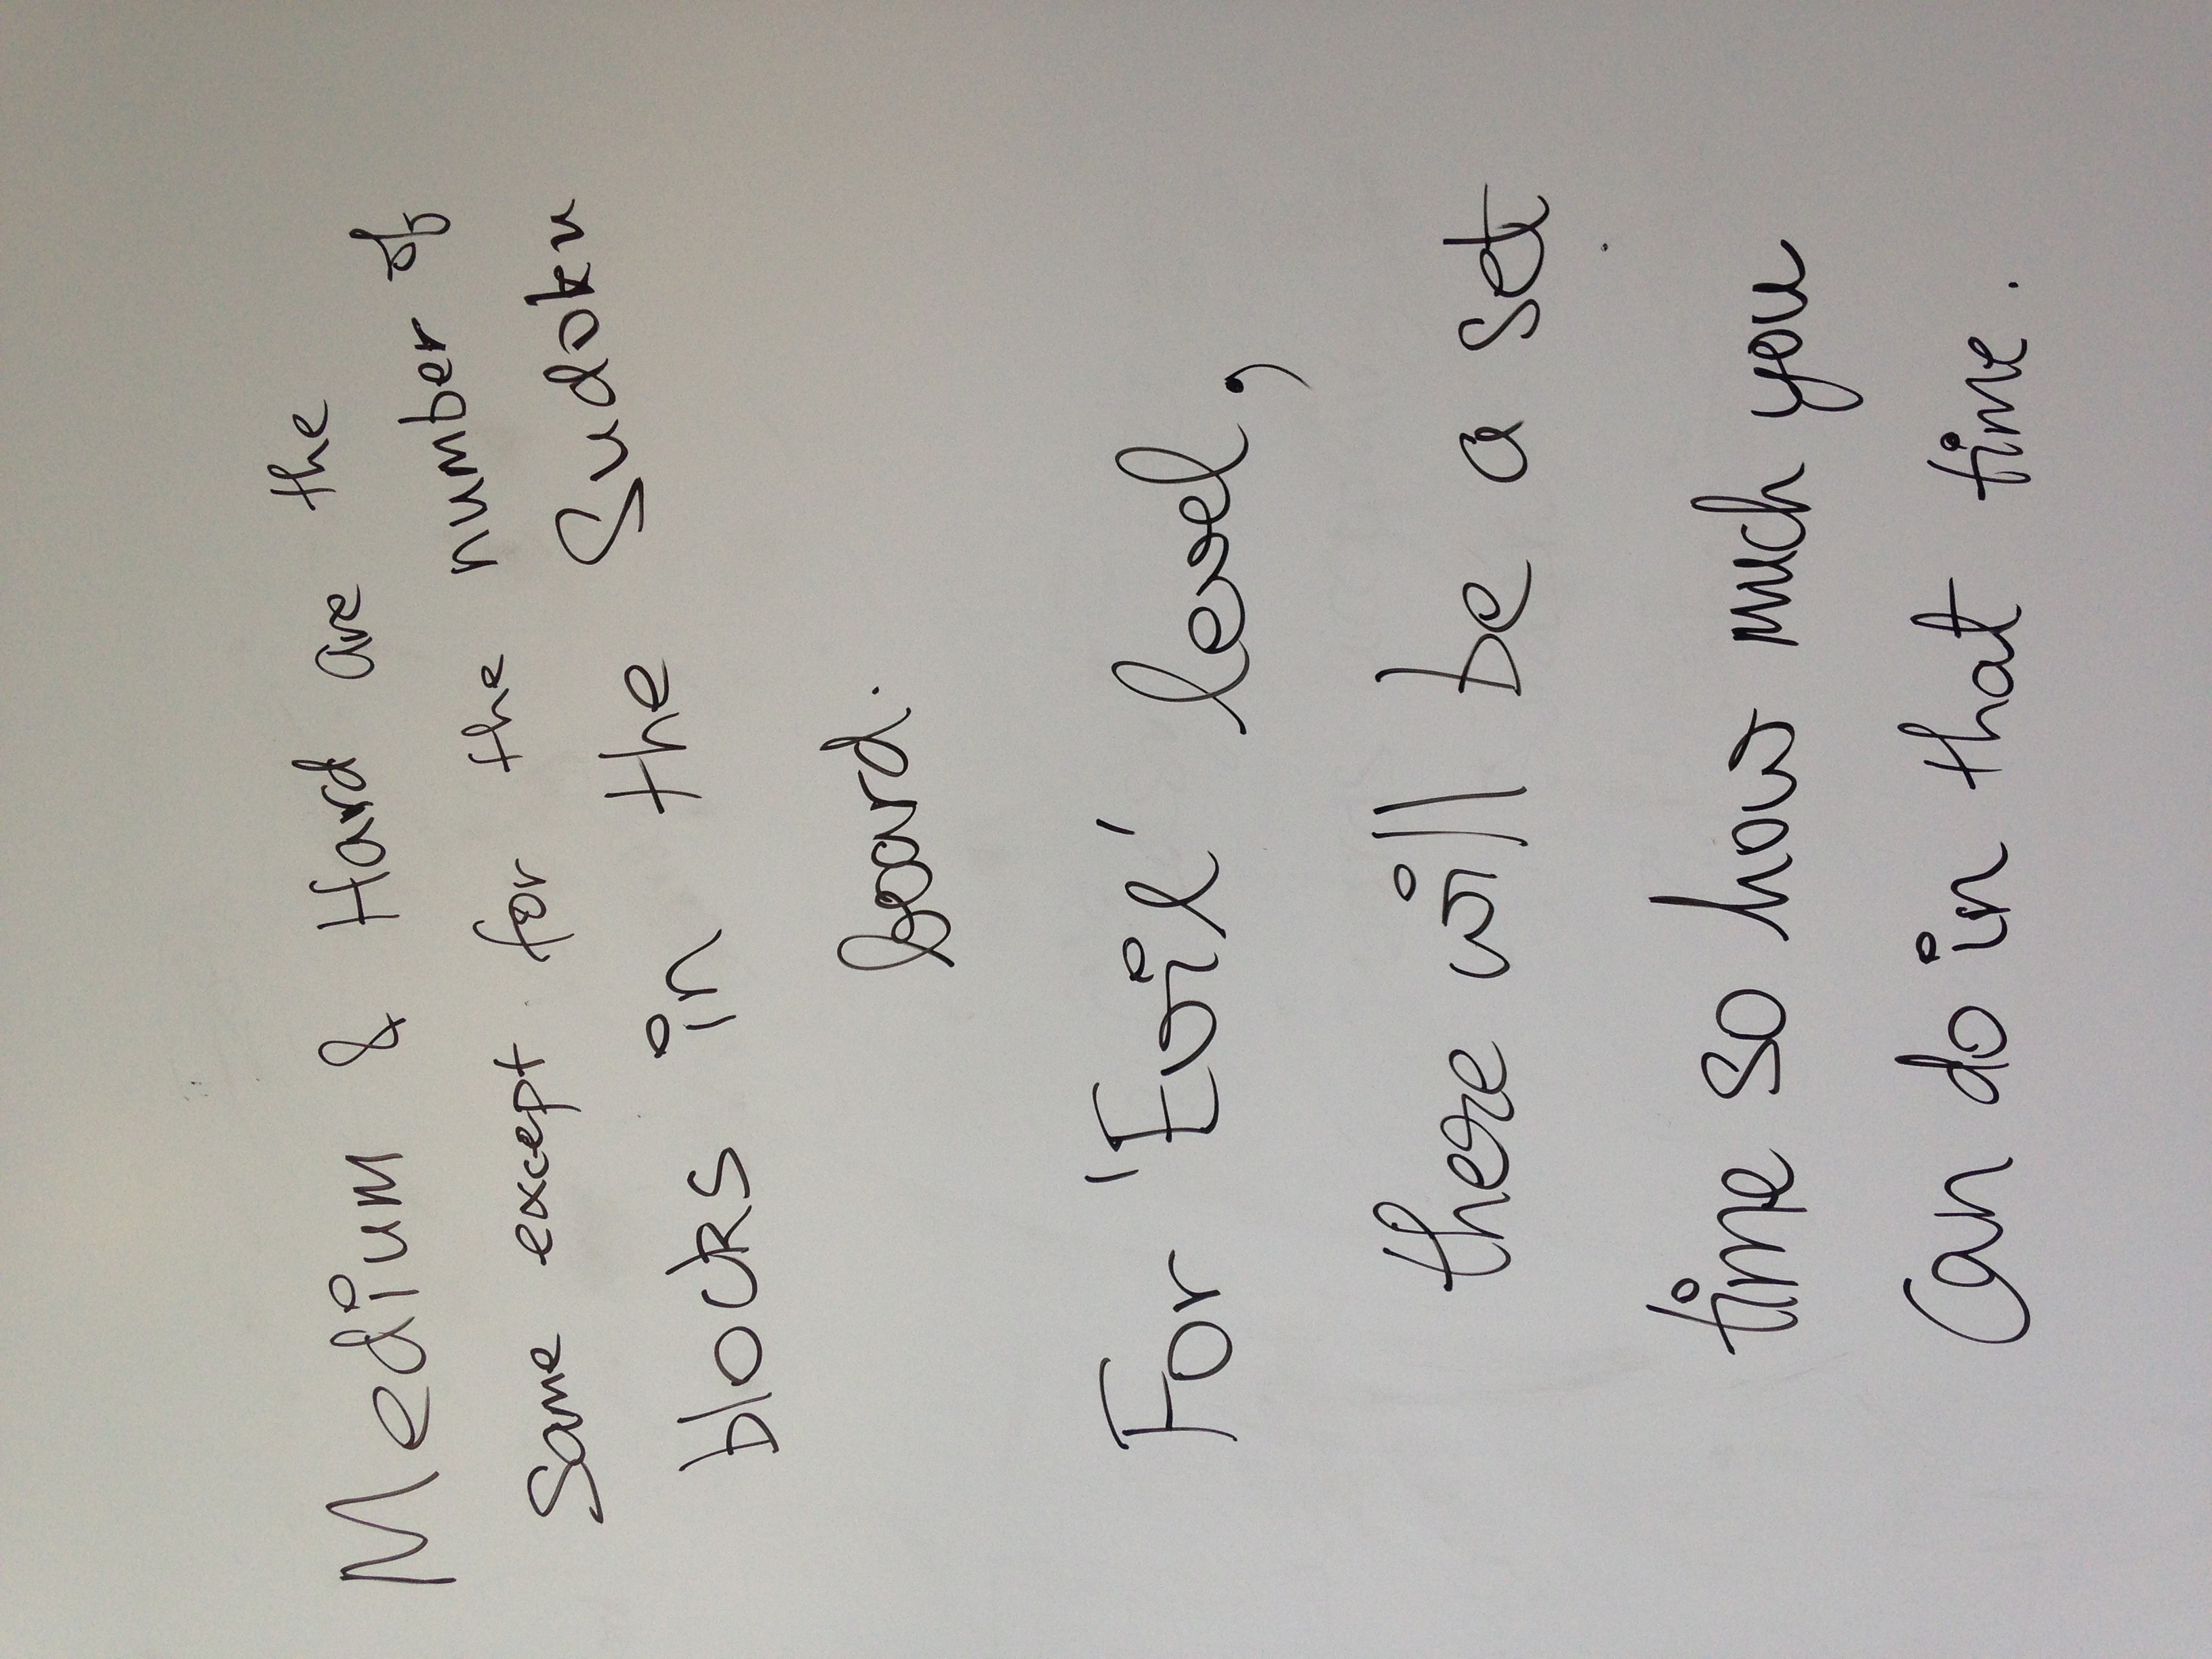 Medium & Hard are the
Same except for the number of
blocks in the Sudoku
board.
For 'Evil' level,
there will be a set
time so how much you
can do in that time.